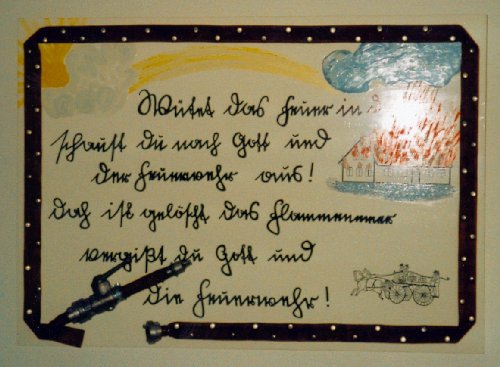 Wütet das Feuer in
schaust du nach Gott und
der Feuerwehr aus!
doch ist gelöscht das Flammenmeer
vergißt du Gott und
die Feuerwehr!